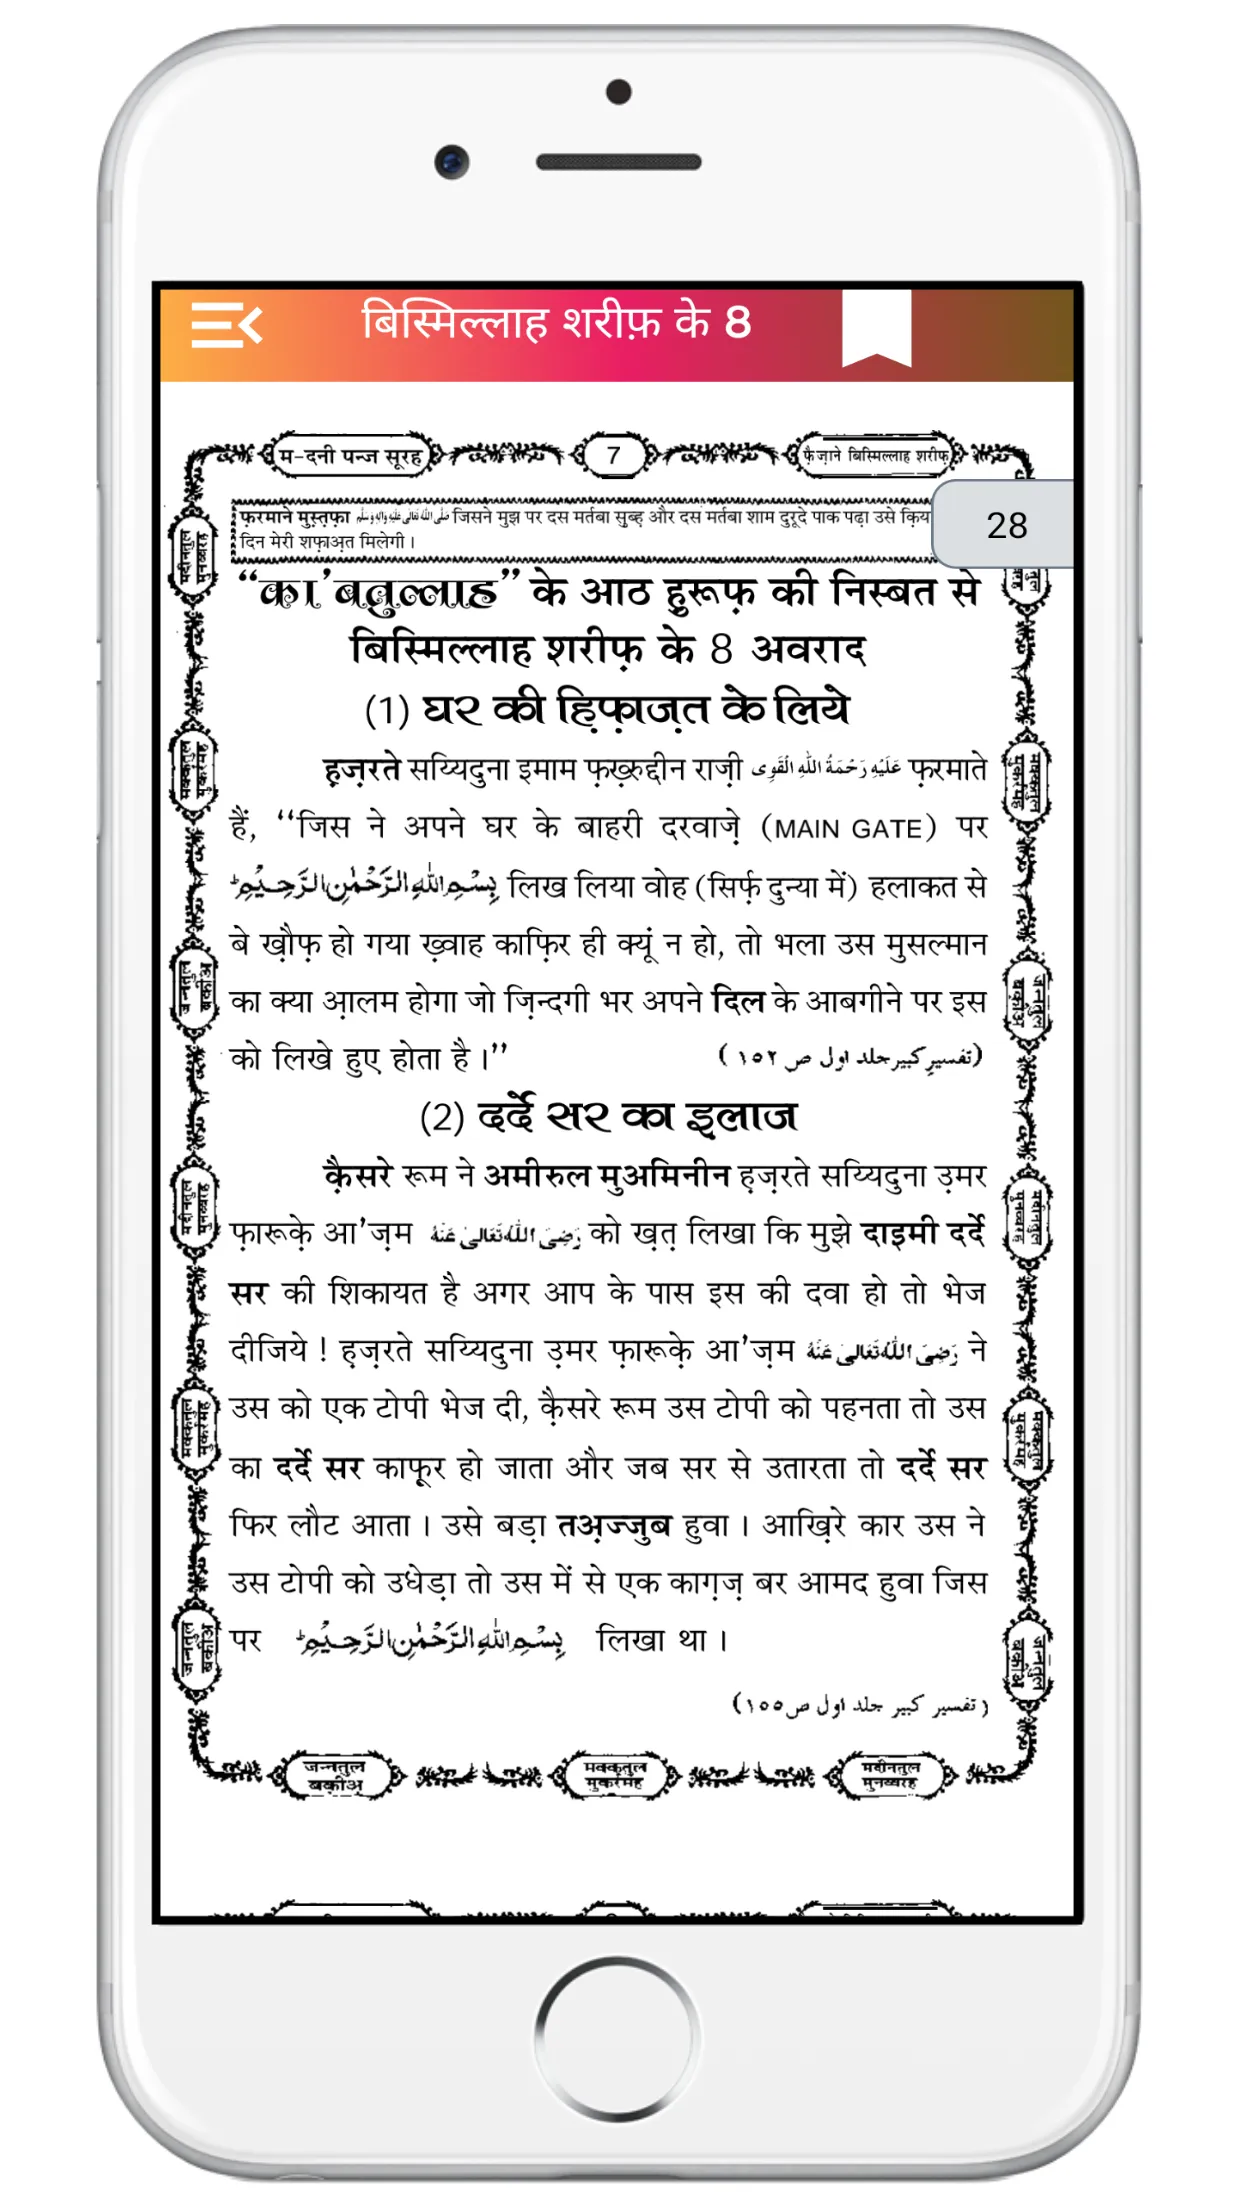 बिस्मिल्लाह शरीफ़ के 8
म-दनी पन्ज सूरह
7
फ़ैज़ाने बिस्मिल्लाह शरीफ़
28
फ़रमाने मुस्त़फ़ा صلى الله تعالى عليه واله وسلم जिसने मुझ पर दस मर्तबा सुब्ह़ और दस मर्तबा शाम दुरूदे पाक पढ़ा उसे क़िय
दिन मेरी शफ़ाअ़त मिलेगी ।
“का'बतुल्लाह” के आठ हुरूफ़ की निस्बत से
बिस्मिल्लाह शरीफ़ के 8 अवराद
(1) घर की हि़फ़ाज़त के लिये
ह़ज़रते सय्यिदुना इमाम फ़ख़्रुद्दीन राज़ी عَلَيْهِ رَحْمَةُ اللهِ الْقَوِى फ़रमाते
हैं, ‘‘जिस ने अपने घर के बाहरी दरवाज़े (MAIN GATE) पर
بِسْمِ اللهِ الرَّحْمٰنِ الرَّحِيْمِ लिख लिया वोह (सिर्फ़ दुन्या में) हलाकत से
बे ख़ौफ़ हो गया ख़्वाह काफ़िर ही क्यूं न हो, तो भला उस मुसल्मान
का क्या आ़लम होगा जो ज़िन्दगी भर अपने दिल के आबगीने पर इस
को लिखे हुए होता है ।’’ (تفسیرِ کبیر جلد اول ص ۱۵۲)
(2) दर्दे सर का इ़लाज
कै़सरे रूम ने अमीरुल मुअमिनीन ह़ज़रते सय्यिदुना उ़मर
फ़ारूक़े आ'ज़म رَضِىَ اللهُ تَعَالىٰ عَنْهُ को ख़त़ लिखा कि मुझे दाइमी दर्दे
सर की शिकायत है अगर आप के पास इस की दवा हो तो भेज
दीजिये ! ह़ज़रते सय्यिदुना उ़मर फ़ारूक़े आ'ज़म رَضِىَ اللهُ تَعَالىٰ عَنْهُ ने
उस को एक टोपी भेज दी, कै़सरे रूम उस टोपी को पहनता तो उस
का दर्दे सर काफूर हो जाता और जब सर से उतारता तो दर्दे सर
फिर लौट आता । उसे बड़ा तअ़ज्जुब हुवा । आख़िरे कार उस ने
उस टोपी को उधेड़ा तो उस में से एक काग़ज़ बर आमद हुवा जिस
पर بِسْمِ اللهِ الرَّحْمٰنِ الرَّحِيْمِ लिखा था ।
(تفسیر کبیر جلد اول ص۱۵۵)
मदीनतुल
मुनव्वरह
मक्कतुल
मुकर्रमह
जन्नतुल
बक़ीअ़
मदीनतुल
मुनव्वरह
मक्कतुल
मुकर्रमह
जन्नतुल
बक़ीअ़
मक्कतुल
मुकर्रमह
जन्नतुल
बक़ीअ़
मदीनतुल
मुनव्वरह
मक्कतुल
मुकर्रमह
जन्नतुल
बक़ीअ़
जन्नतुल
बक़ीअ़
मक्कतुल
मुकर्रमह
मदीनतुल
मुनव्वरह